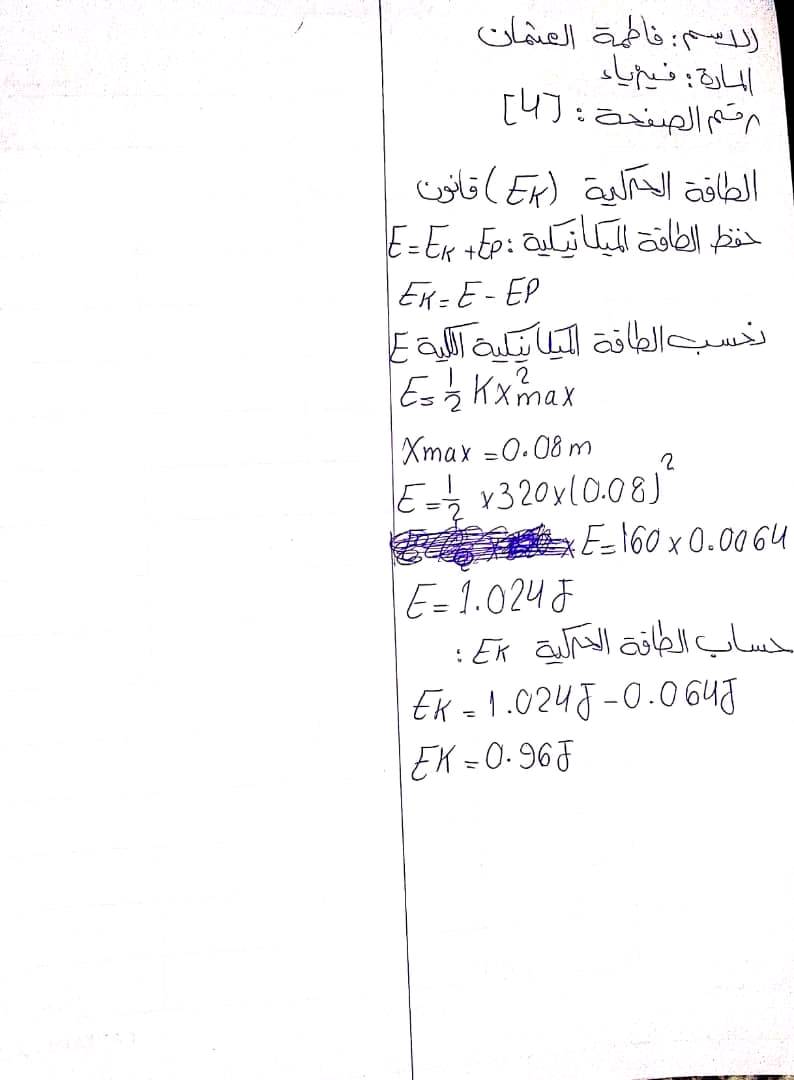 الاسم: فاطمة العثمان
المادة: فيزياء
رقم الصفحة: [4]
الطاقة الحركية (EK) قانون
حفظ الطاقة الميكانيكية: E = EK + EP
EK = E - EP
نحسب الطاقة الميكانيكية الكلية E
E = 1/2 Kx²max
Xmax = 0.08 m
E = 1/2 × 320 × (0.08)²
E = 160 × 0.0064
E = 1.024 J
حساب الطاقة الحركية EK :
EK = 1.024 J - 0.064 J
EK = 0.96 J